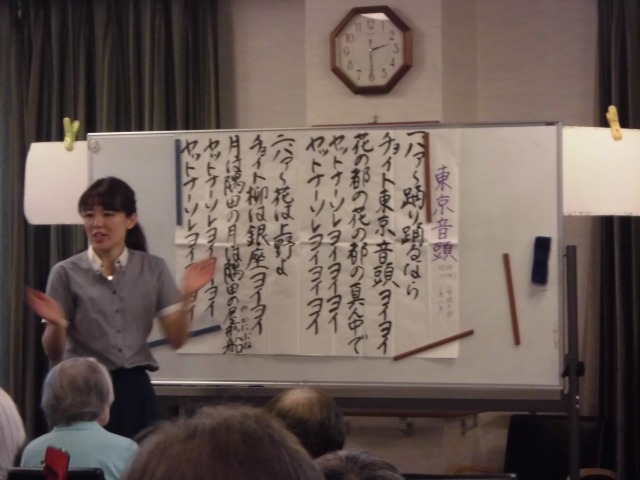 東京音頭
ハァ〜踊り踊るなら
チョイト東京音頭ヨイヨイ
花の都の花の都の真ん中で
ヤットナーソレヨイヨイヨイ
ヤットナーソレヨイヨイヨイ
ハァ〜花は上野よ
チョイト柳は銀座ヨイヨイ
月は隅田の月は隅田の屋形船
ヤットナーソレヨイヨイヨイ
ヤットナーソレヨイヨイヨイ